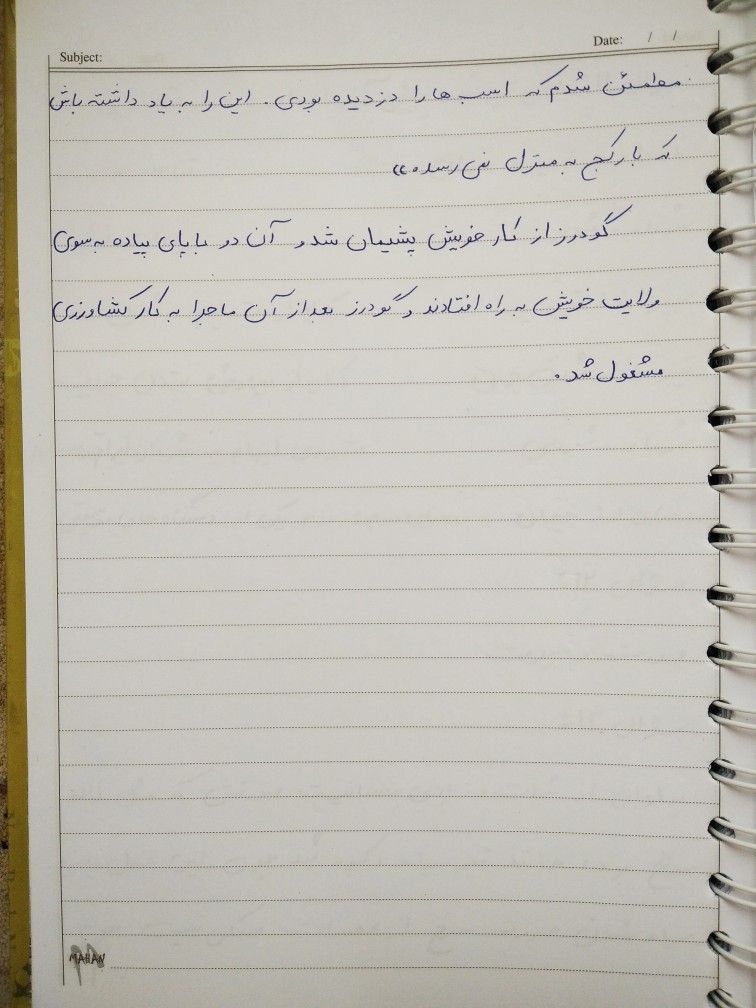 Date: / /
Subject:
مطمئن شدم که اسب ها را دزدیده بودی. این را به یاد داشته باش
که بار کج به منزل نمی رسد.»
گودرز از کار خویش پشیمان شد و آن دو با پای پیاده به سوی
ولایت خویش به راه افتادند و گودرز بعد از آن ماجرا به کار کشاورزی
مشغول شد.
MAHAN